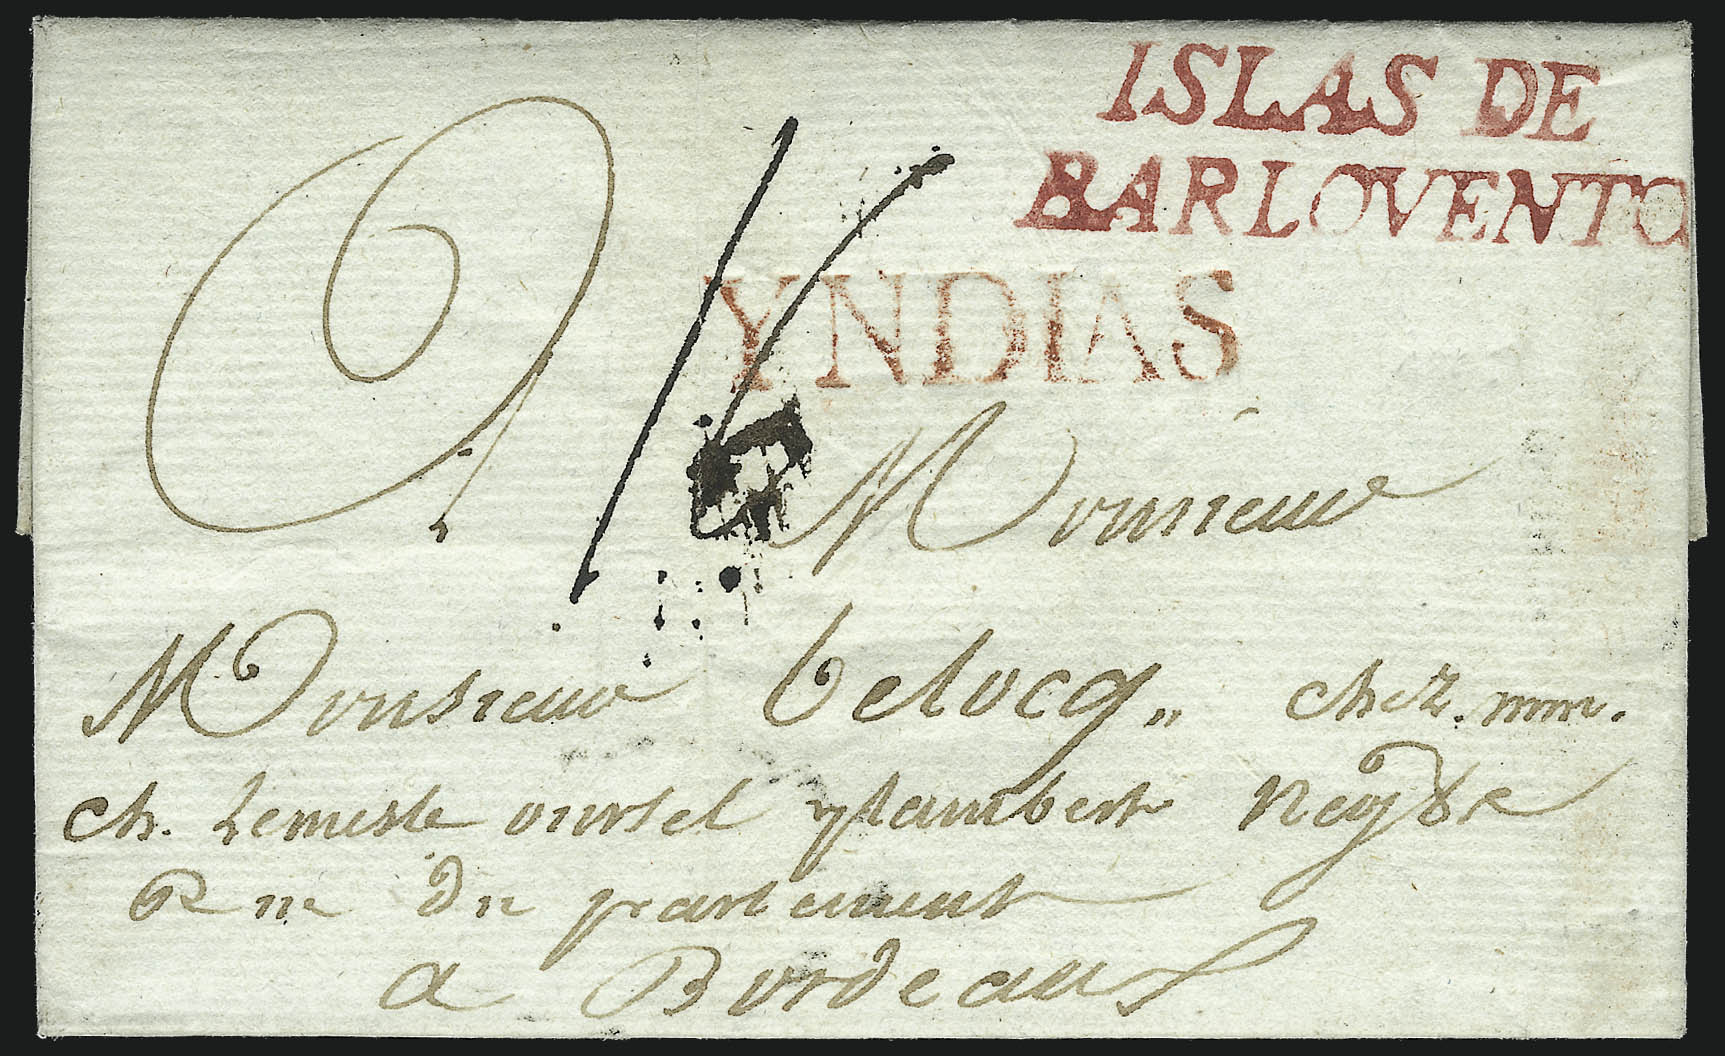 ISLAS DE
BARLOVENTO
YNDIAS
Monsieur
Monsieur belocq,, chez. mrs.
ch. Lemesle oursel & lambert Neg
Rue Du parlement
a Bordeaux